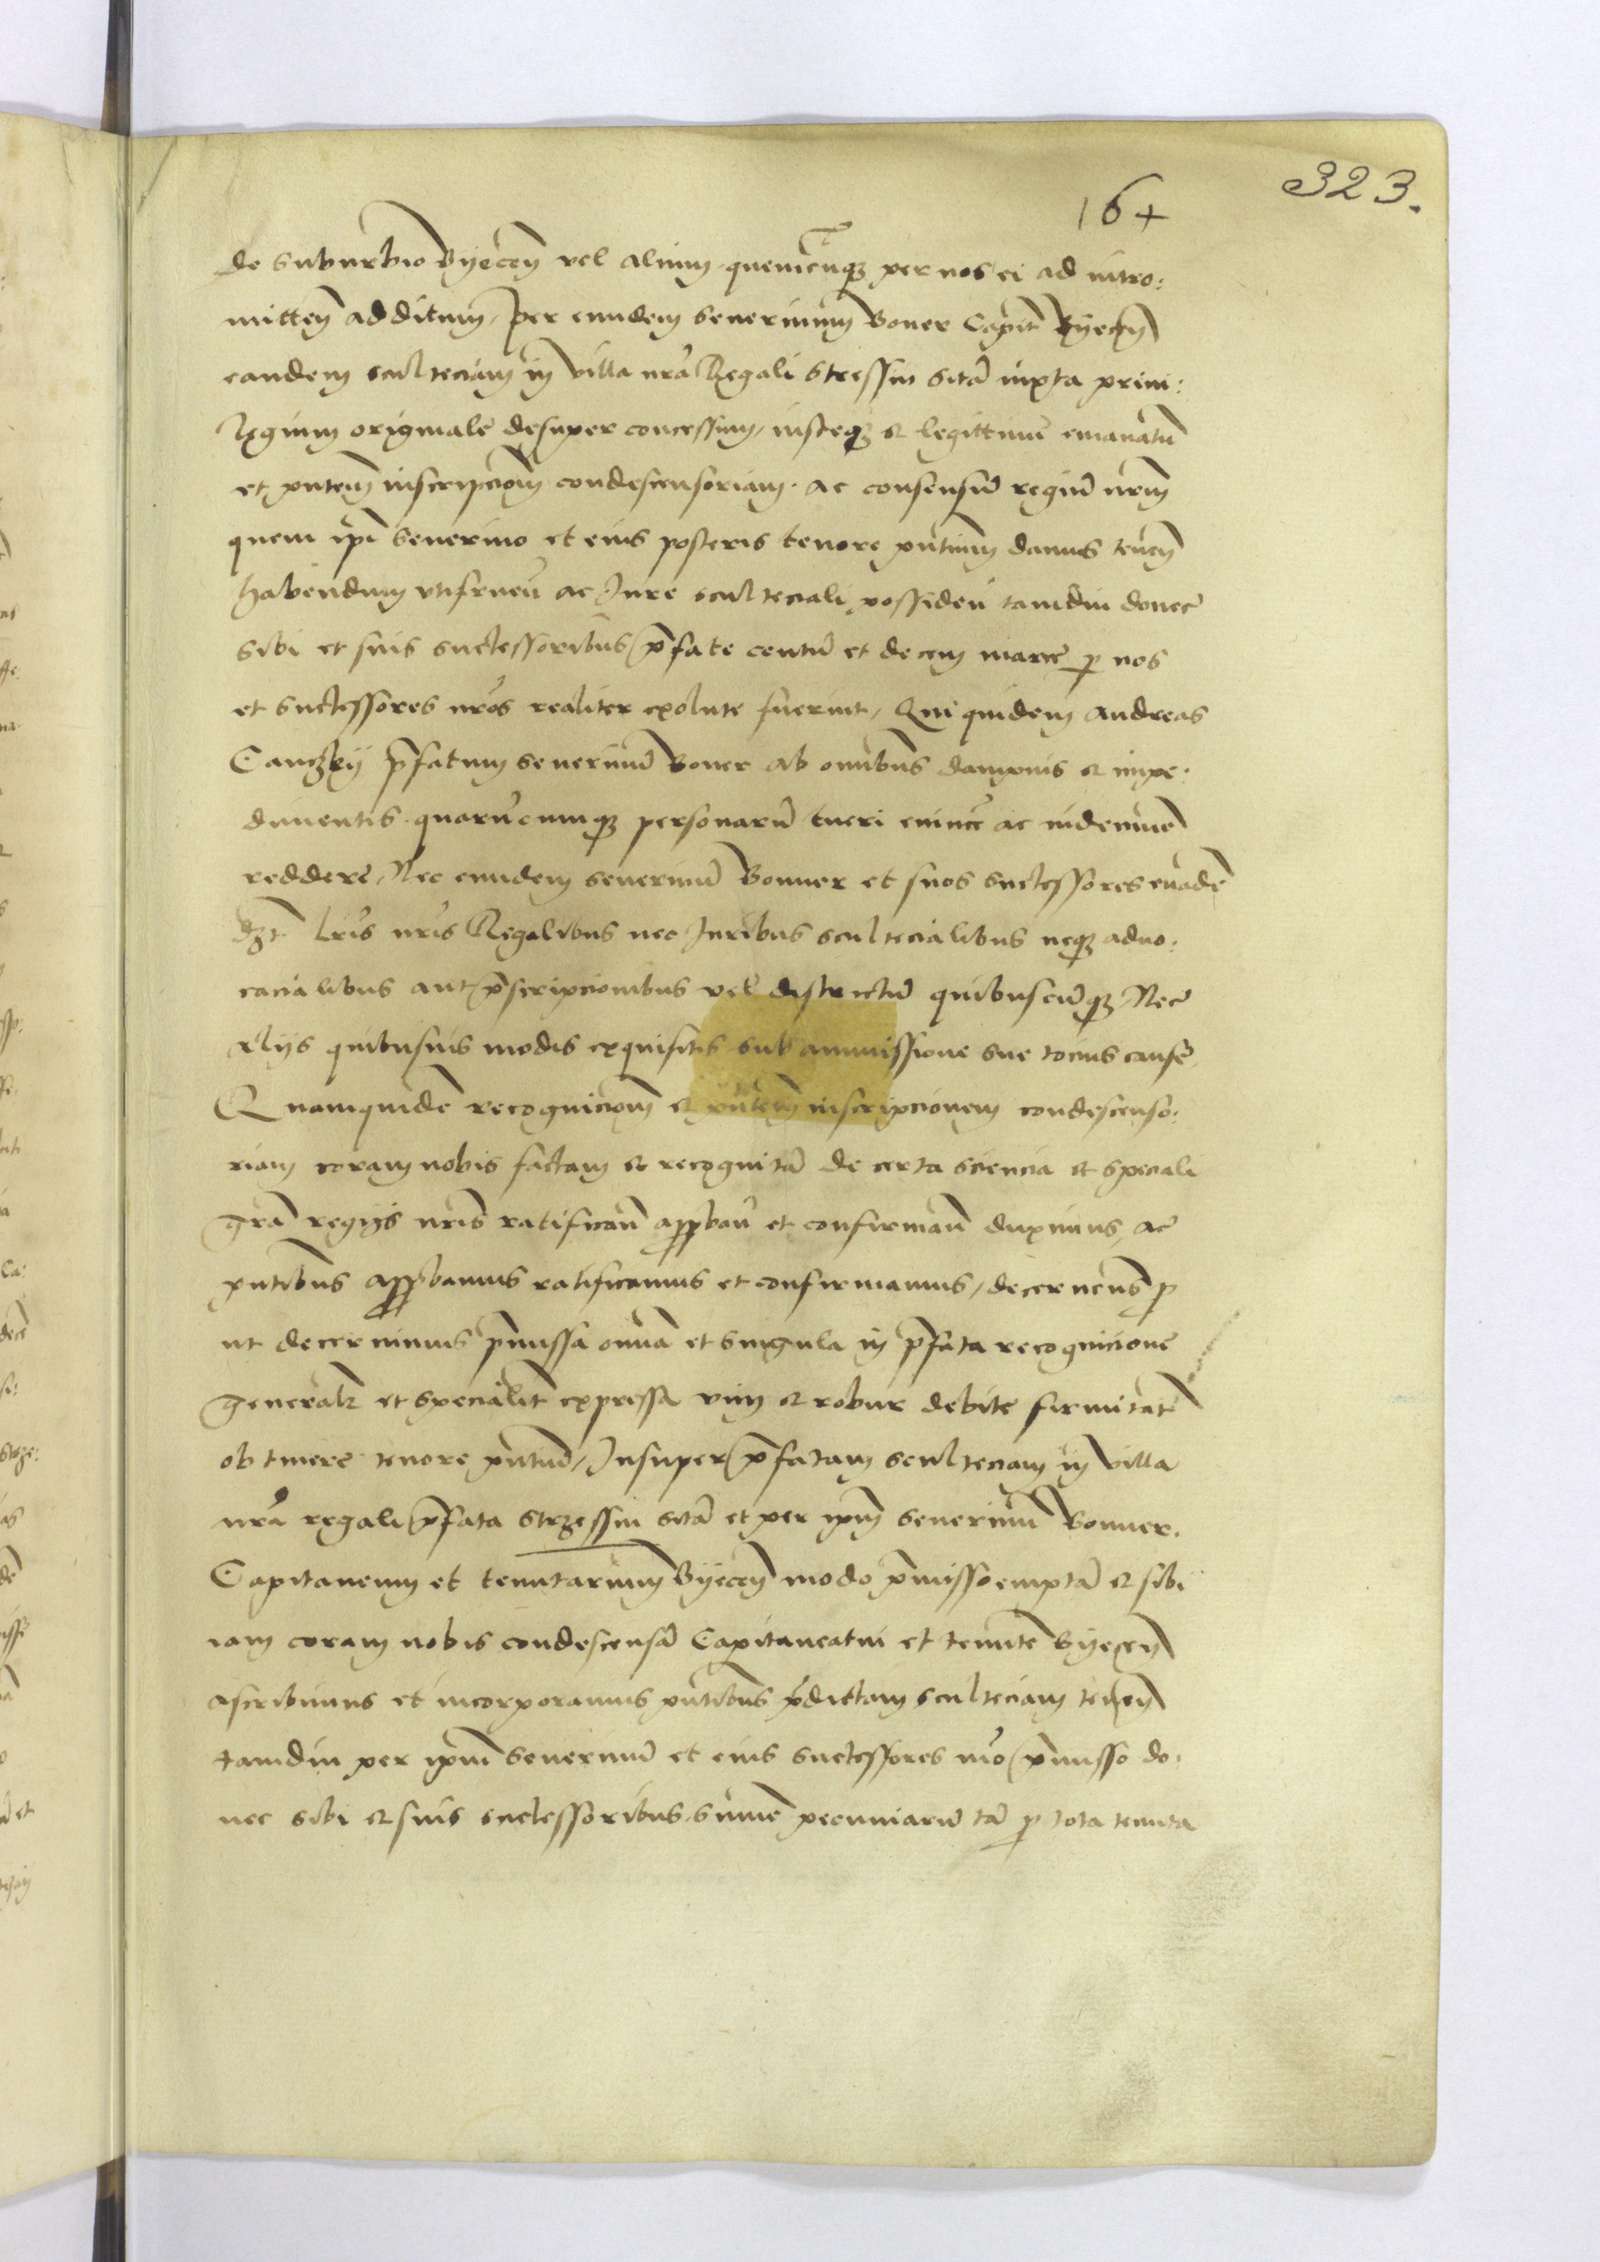 323.
16+
de suburbio Byeceñ vel alium quemcunqȝ per nos ei ad intro:
mitteñ additum, per eundem Seuerinum Boner Capit̃ Byeceñ
eandem sculteciam in villa nr̃a Regali Stressin sitã iuxta priui:
legium originale desuper concessum, iusteqȝ et legittime emanatũ
et pñtem inscripcioñem condescensoriam. ac consensũ regiũ nr̃m
quem ip̃i Seuerino et eius posteris tenore pñtium damus teneñ
habendum vtifrueñ ac Jure scultetiali possideñ tamdiu donec
sibi et suis successoribus p̃fate centũ et decem marce ꝑ nos
et successores nr̃os realiter exolute fuerint, Qui quidem Andreas
Canczky p̃fatum Seuerinũ Boner ab omnibus dampnis et impe:
dimentis quarũcunqȝ personarũ tueri euince ac indemnem
reddere, Nec eundem Seuerinũ Bonner et suos successores euadẽ
dȝt lr̃is nr̃is Regalibus nec Juribus scultecialibus neqȝ aduo:
cacialibus aut p̃scripcionibus vel districtũ quibuscũqȝ Nec
alijs quibusuis modis exquisitis sub ammissione sue tocius cause
Quamquidẽ recognicioñem et pñtem inscripcionem condescenso:
riam coram nobis factam et recognitã de certa sciencia et speciali
gr̃a regijs nr̃is ratificañ approbañ et confirmañ duximus, ac
pñtibus approbamus ratificamus et confirmamus, decernens ꝓ
ut decernimus p̃missa om̃ia et singula in p̃fata recognicione
generaliter et specialit̃ expressa vim et robur debite firmitatis
obtinere tenore pñtium, Insuper p̃fatam scultetiam in villa
nr̃a regali p̃fata Strzessin sitã et per ip̃m Seuerinũ Bonner.
Capitaneum et tenutarium Byeceñ modo p̃misso emptã et sibi
iam coram nobis condescensã Capitaneatui et tenute Byeceñ
ascribimus et incorporamus pñtibus p̃dictam scultetiam teneñ
tamdiu per ip̃m Seuerinũ et eius successores mõ p̃misso do:
nec sibi et suis successoribus summe pecuniarũ tã ꝓ tota tenuta